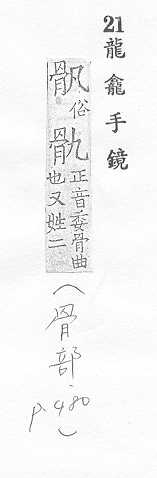 21 龍龕手鏡
骪俗骩正音委骨曲也又姓二
（骨部. p.480）